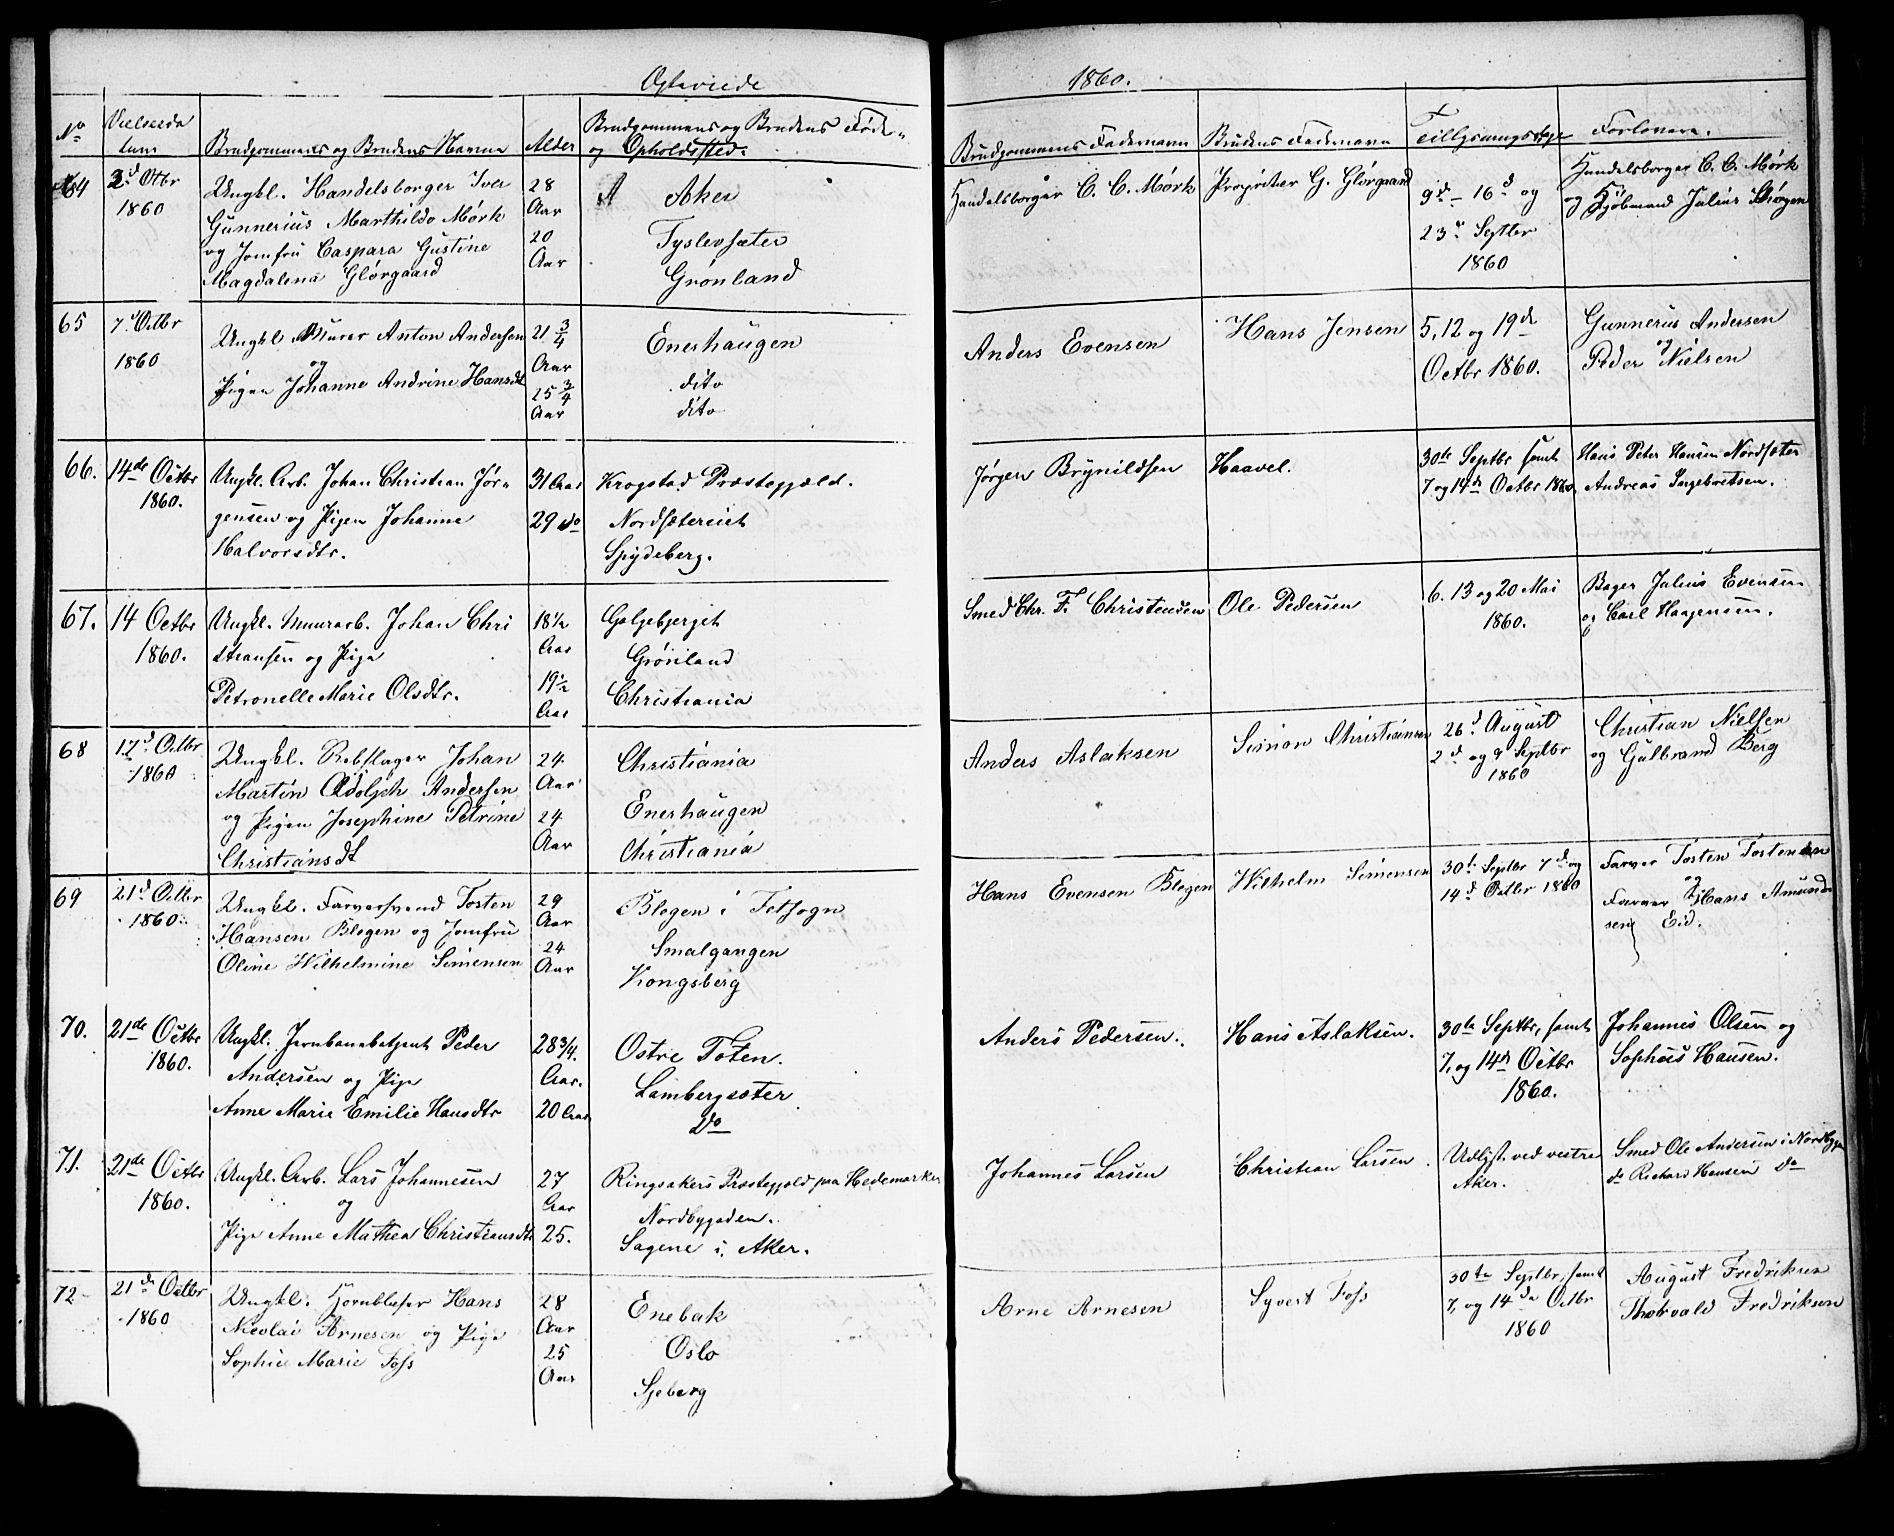 Egteviede 1860.
No
Vielsesda
tum
Brudgommens og Brudens Navne
Alder
Brudgommens og Brudens Føde-
og Opholdssted.
Brudgommens Fadernavn
Brudens Fadernavn
Tillysningsdage
Forlovere.
64
2d Octbr
1860
Ungkl. Handelsborger Iver
Gunnerius Marthildo Mørk
og Jomfru Caspara Gustine
Magdalena Glørgaard
28
Aar
20
Aar
Aker
Tyslevsæter
Grønland
Handelsborger C. C. Mørk
Proprietær G. Glørgaard
9d - 16d og
23d Septbr
1860
Handelsborger C. C. Mørk
og Kjøbmand Julius
65
7d Octbr
1860
Ungkl Murer Anton Andersen
og
Pigen Johanne Andrine Hansdt
21 3/4
Aar
25 3/4
Aar
Enerhaugen
dito
dito
Anders Evensen
Hans Jensen
5, 12 og 19de
Octbr 1860.
Gunnerius Andersen
og
Peder Nielsen
66.
14de Octbr
1860.
Ungkl. Arb. Johan Christian Jør-
gensen og Pigen Johanne
Halvorsdtr.
31 Aar
29 do
Krogstad Præstegjæld.
Nordsætereiet
Spydeberg.
Jørgen Brynildsen
Haavel.
30te Septbr samt
7 og 14de Octbr 1860.
Hans Peter Hansen Nordsæter
Andreas Ingebretsen.
67.
14 Octbr
1860.
Ungkl. Muurarb. Johan Chri
stiansen og Pige
Petronelle Marie Olsdtr.
18 1/2
Aar
19 1/2
Aar
Galgebjerget
Grønland
Christiania
Smed Chr. F. Christensen
Ole Pedersen
6. 13 og 20 Mai
1860.
Bager Julius Evensen
og Carl Haagensen.
68
17d Octbr
1860
Ungkl. Rebslager Johan
Martin Adolph Andersen
og Pigen Josephine Petrine
Christiansdt
24
Aar
24
Aar
Christiania
Enerhaugen
Christiania
Anders Aslaksen
Simon Christiansen
26d August
2d og 9 Septbr
1860
Christian Nielsen
og Gulbrand Berg
69
21d Octbr
1860
Ungkl. Farversvend Tosten
Hansen Blegen og Jomfru
Oline Wilhelmine Simensen
29
Aar
24
Aar
Blegen i Fetsogn
Smalgangen
Kongsberg
Hans Evensen Blegen
Wilhelm Simensen
30te Septbr 7d og
14d Octbr 1860
Farver Tosten Tostensen
og
Farver Hans Amund-
sen Eid.
70.
21de Octbr
1860.
Ungkl. Jernbanebetjent Peder
Andersen og Pige
Anne Marie Emilie Hansdtr
28 3/4.
Aar.
20 Aar
Østre Toten.
Lambergsæter
Do
Anders Pedersen.
Hans Aslaksen.
30te Septbr, samt
7, og 14de Octbr
1860.
Johannes Olsen og
Sophus Hansen.
71.
21de Octbr
1860.
Ungkl. Arb. Lars Johannesen
og
Pige Anne Mathea Christiansdtr
27
Aar
25.
Ringsakers Præstegjeld paa Hedemarken
Nordbygaden.
Sagene i Aker.
Johannes Larsen
Christian Larsen.
Udlyst ved vestre
Aker.
Smed Ole Andersen i Nordbyga
do Richard Hansen do
72
21de Octbr
1860
Ungkl. Hornblæser Hans
Nicolai Arnesen og Pige
Sophie Marie Foss
28
Aar
25
Aar
Enebak
Oslo
Sjeberg
Arne Arnesen
Syvert Foss
30te Septbr, samt
7, og 14de Octbr
1860
August Fredriksen
Thorvald Fredriksen